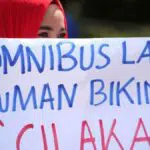 OMNIBUS LA
UMAN BIKIN
CILAKA